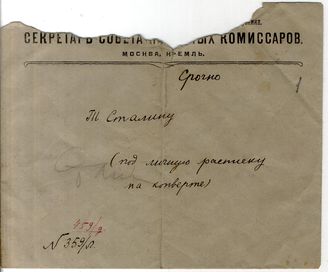 СЕКРЕТАРЬ СОВЕТА НАРОДНЫХ КОМИССАРОВ.
МОСКВА, КРЕМЛЬ.
Срочно
1
Т Сталину
(под личную расписку
на конверте)
459/д
№ 353/л.